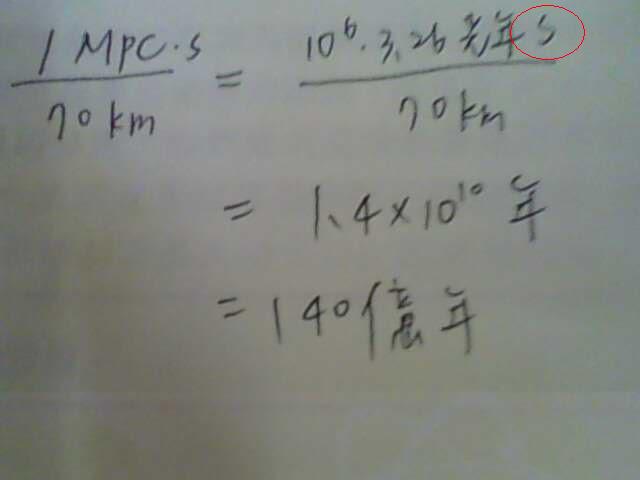 1 MPC·S / 70 km = 10⁶·3.26光年 S / 70 km
= 1.4×10¹⁰ 年
= 140億年